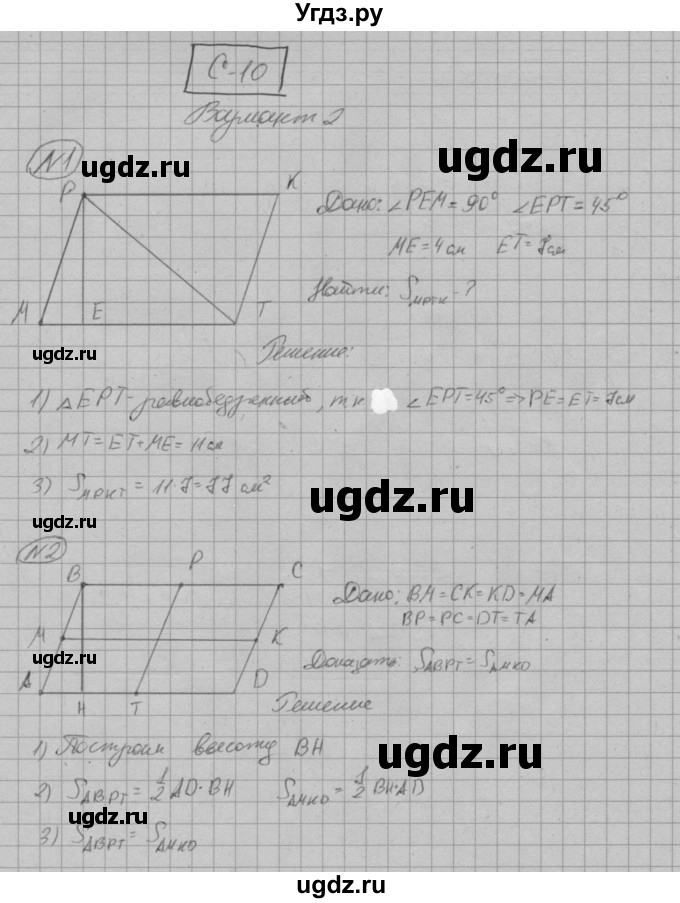 Угдз.ру
С-10
Вариант 2
N1
ugdz.ru
ugdz.ru
P
K
Дано: ∠PEM = 90° ∠EPT = 45°
ME = 4 см ET = 7 см
Найти: S МРТК - ?
M E T
ugdz.ru
Решение:
1) △EPT - равнобедренный, т.к ∠EPT = 45° => PE = ET = 7 см
2) MT = ET + ME = 11 см
3) S МРКТ = 11 · 7 = 77 см²
ugdz.ru
ugdz.ru
N2
B P C
Дано: BM = CK = KD = MA
BP = PC = DT = TA
M K
Доказать: S ABPT = S AMKD
A H T D
ugdz.ru
Решение
1) Построим высоту BH
ugdz.ru
2) S ABPT = 1/2 AD · BH S AMKD = 1/2 BH · AD
ugdz.ru
3) S ABPT = S AMKD
ugdz.ru